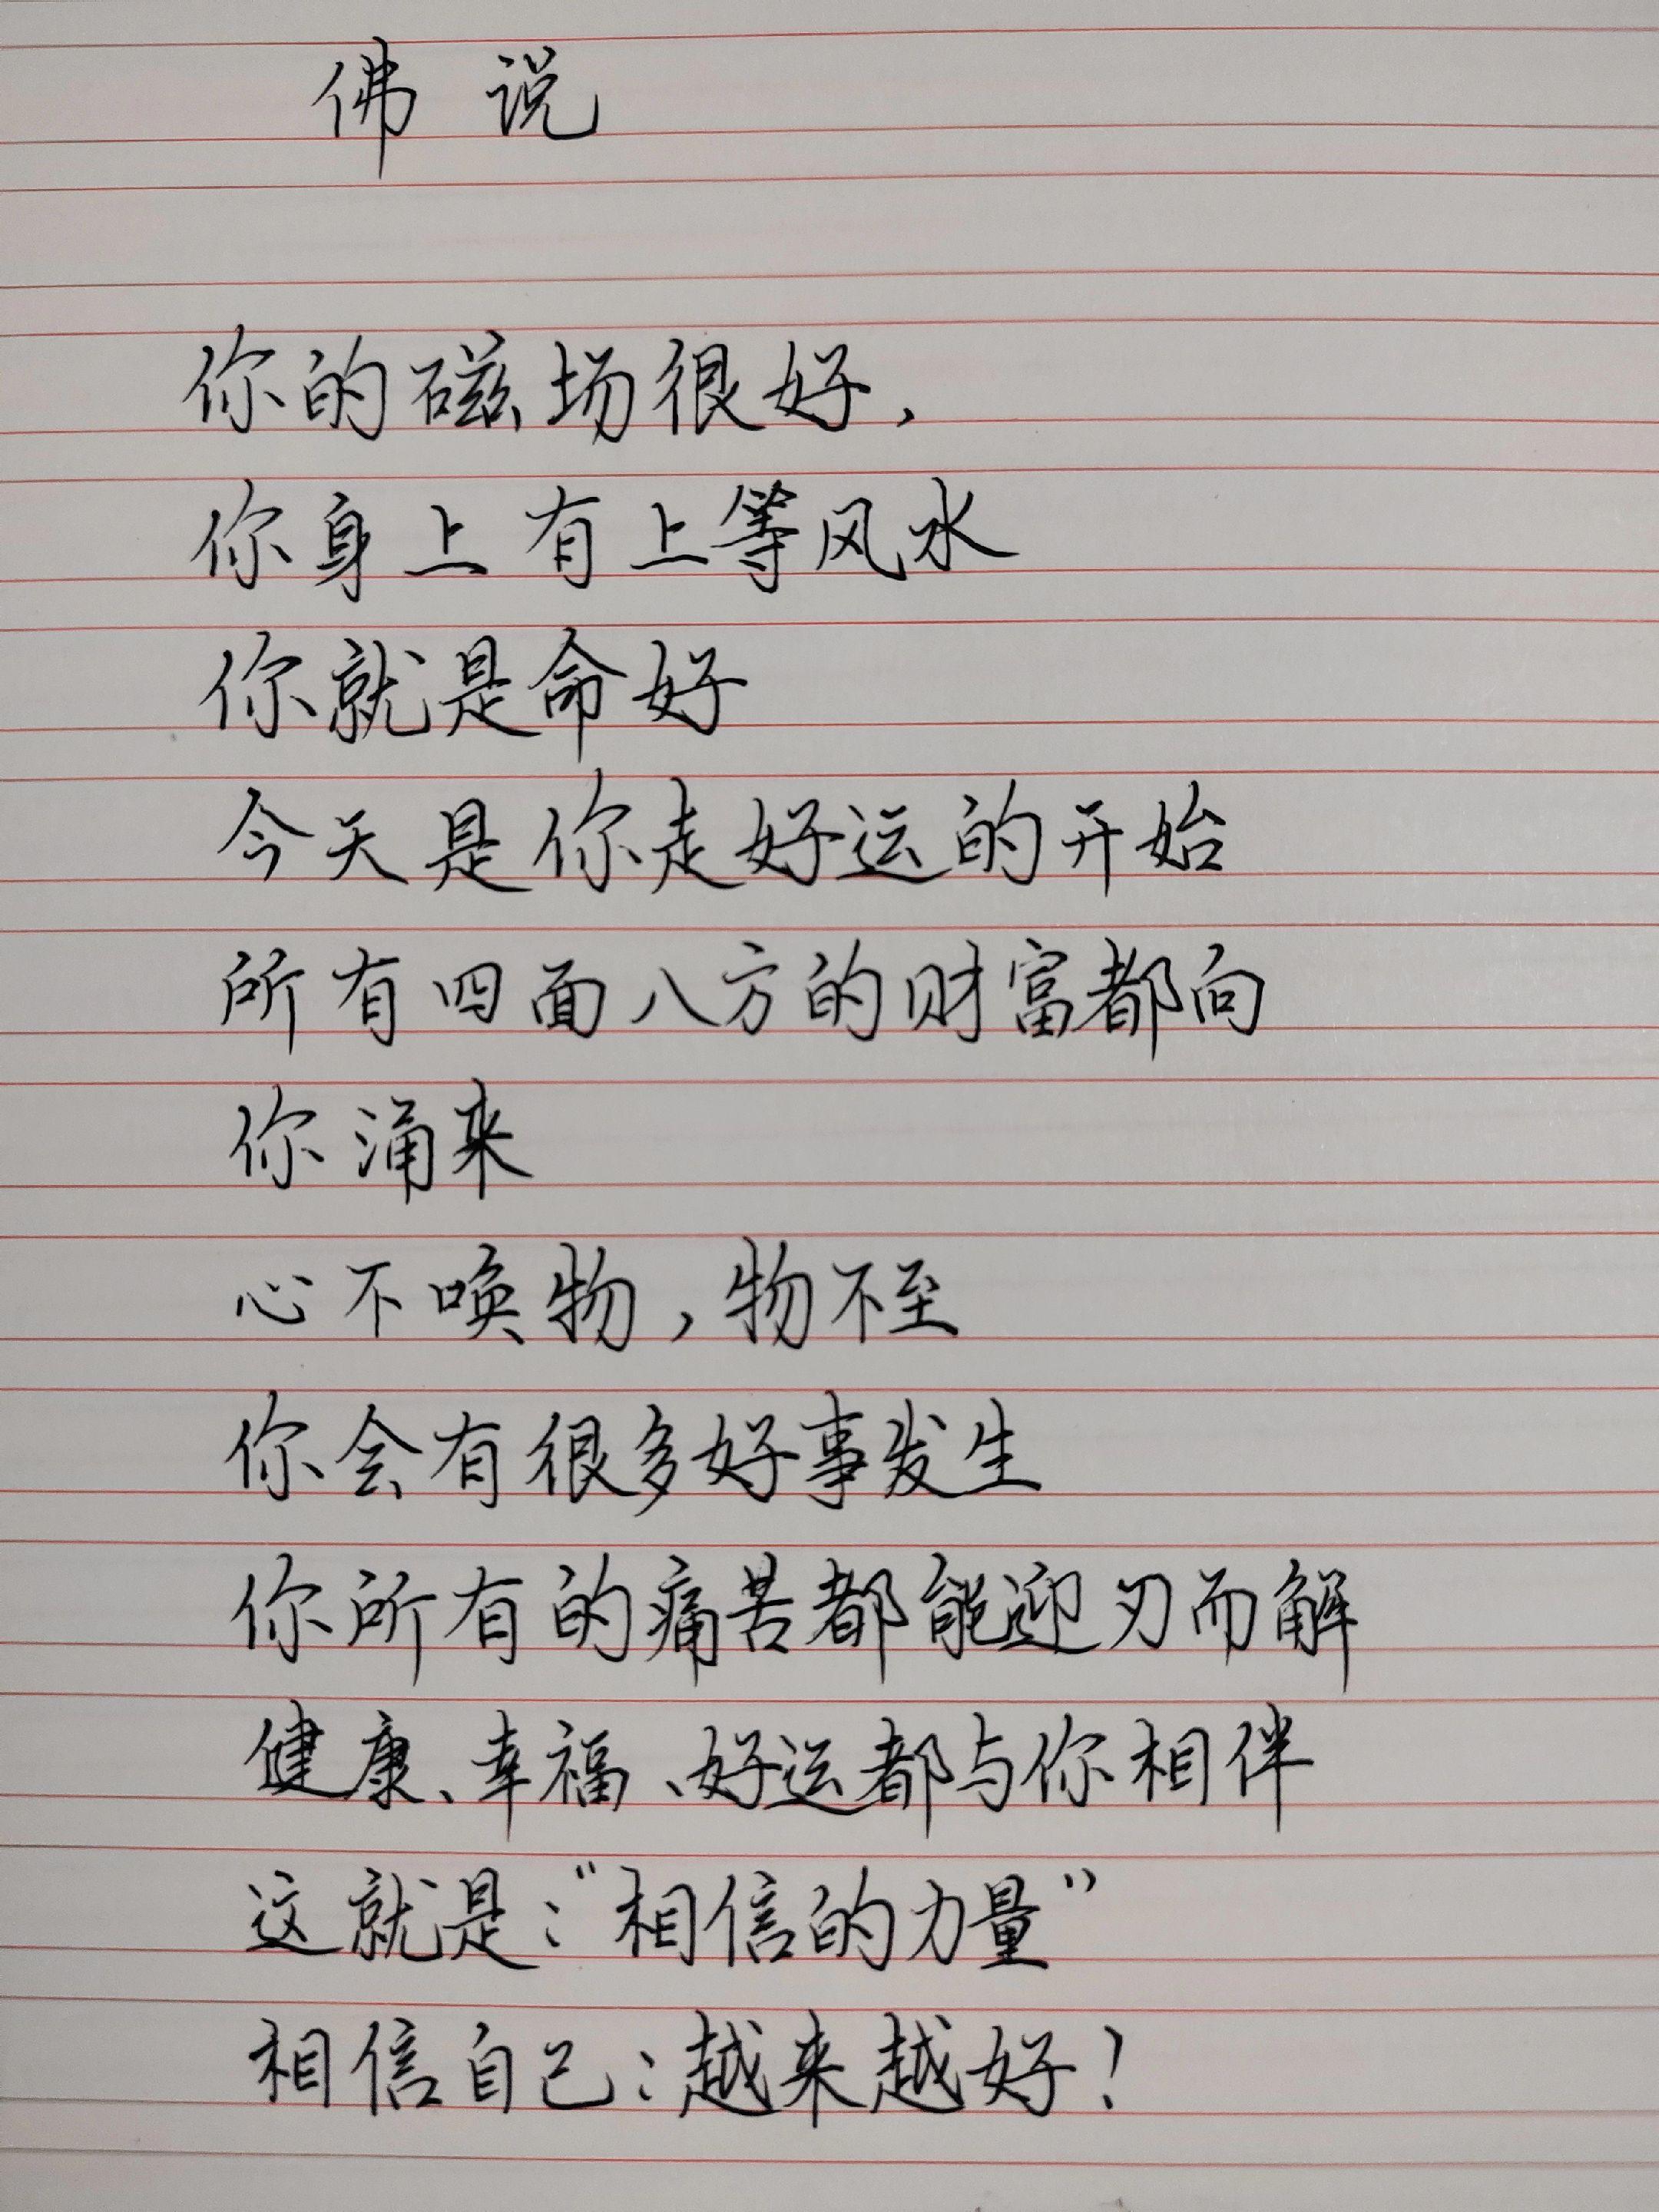 佛说
你的磁场很好,
你身上有上等风水
你就是命好
今天是你走好运的开始
所有四面八方的财富都向
你涌来
心不唤物,物不至
你会有很多好事发生
你所有的痛苦都能迎刃而解
健康、幸福、好运都与你相伴
这就是:“相信的力量”
相信自己:越来越好!